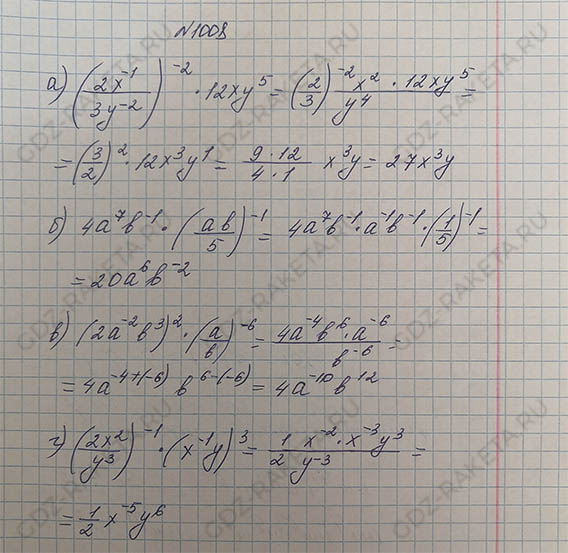 №1008
а) (2x^-1 / 3y^-2)^-2 · 12xy^5 = (2/3)^-2 x^2 · 12xy^5 / y^4 =
= (3/2)^2 · 12x^3y^1 = 9·12 / 4·1 x^3y = 27x^3y
б) 4a^7b^-1 · (ab/5)^-1 = 4a^7b^-1 · a^-1b^-1 · (1/5)^-1 =
= 20a^6b^-2
в) (2a^-2b^3)^2 · (a/b)^-6 = 4a^-4b^6 · a^-6 / b^-6 =
= 4a^-4+(-6) b^6-(-6) = 4a^-10b^12
г) (2x^2/y^3)^-1 · (x^-1y)^3 = 1/2 x^-2 · x^-3y^3 / y^-3 =
= 1/2 x^-5y^6
GDZ-RAKETA.RU